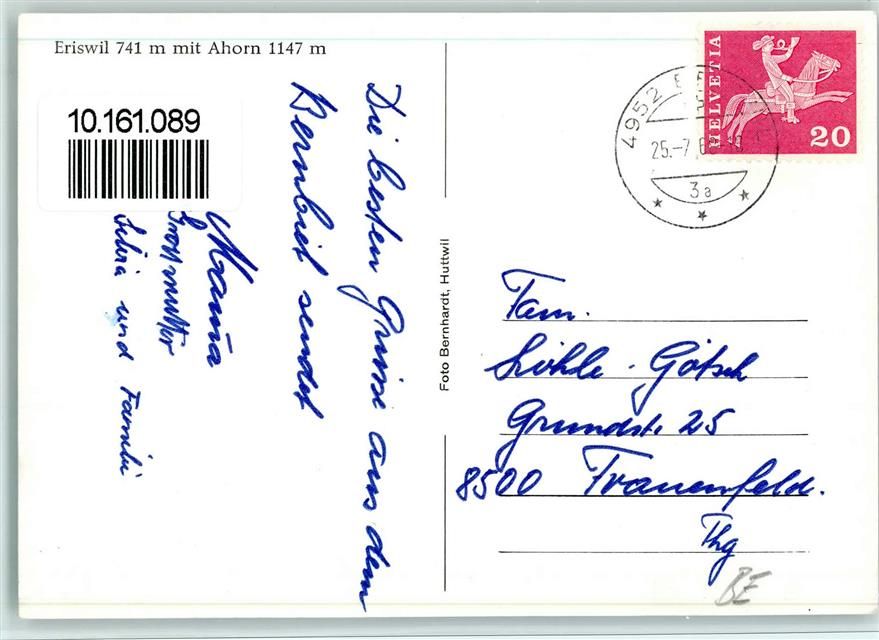 Eriswil 741 m mit Ahorn 1147 m
10.161.089
Die besten Grüsse aus dem
Bernbiet sendet
Mama
Grossmutter
Silvia und Familie
Foto Bernhardt, Huttwil
HELVETIA
20
4952
25.-7
3a
Fam.
Löhle - Götsch
Grundstr. 25
8500 Frauenfeld.
Thg
BE